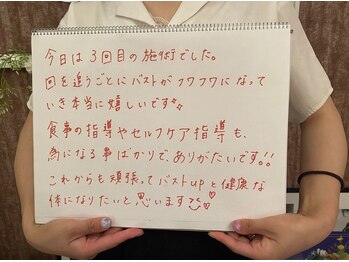 今日は3回目の施術でした。
回を追うごとにバストがフワフワになって
いき本当に嬉しいです
食事の指導やセルフケア指導も、
為になる事ばかりで、ありがたいです!!
これからも頑張ってバストupと健康な
体になりたいと思います